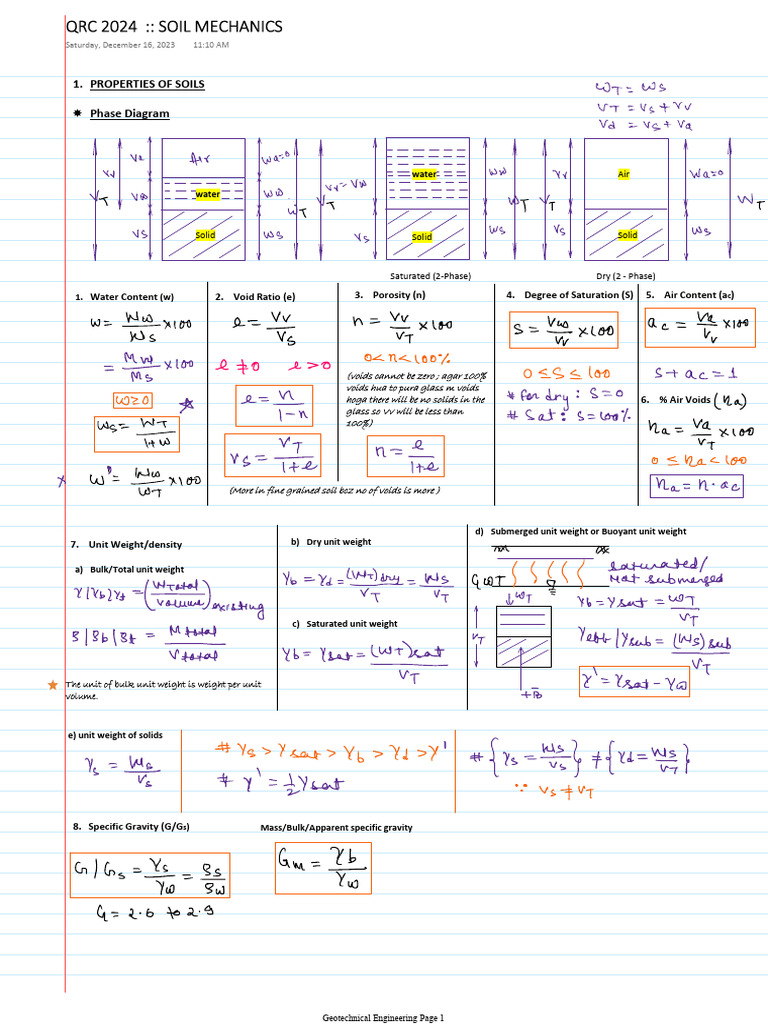 QRC 2024 :: SOIL MECHANICS
Saturday, December 16, 2023 11:10 AM
1. PROPERTIES OF SOILS
✷ Phase Diagram
W_T = W_S
V_T = V_S + V_V
V_d = V_S + V_a
V_T V_V V_a Air W_a=0
V_W water W_W W_T
V_S Solid W_S
V_T V_V = V_W water W_W W_T
V_S Solid W_S
V_T V_V Air W_a=0 W_T
V_S Solid W_S
Saturated (2-Phase)
Dry (2 - Phase)
1. Water Content (w)
w = W_W/W_S ×100
= M_W/M_S ×100
w≥0
W_S = W_T/1+w
w' = W_W/W_T ×100
2. Void Ratio (e)
e = V_V/V_S
e ≠ 0 e > 0
e = n/1-n
V_S = V_T/1+e
(More in fine grained soil bcz no of voids is more )
3. Porosity (n)
n = V_V/V_T ×100
0<n<100%
(voids cannot be zero ; agar 100%
voids hua to pura glass m voids
hoga there will be no solids in the
glass so VV will be less than
100%)
n = e/1+e
4. Degree of Saturation (S)
S = V_W/V ×100
0 ≤ S ≤ 100
* for dry : S=0
# Sat : S=100%
5. Air Content (ac)
a_c = V_a/V_V ×100
S + a_c = 1
6. % Air Voids (n_a)
n_a = V_a/V_T ×100
0 ≤ n_a < 100
n_a = n·a_c
7. Unit Weight/density
a) Bulk/Total unit weight
γ/γ_b/γ_t = (W_Total/Volume)existing
ρ/ρ_b/ρ_t = M total/V total
★ The unit of bulk unit weight is weight per unit
volume.
b) Dry unit weight
γ_b = γ_d = (W_T)dry/V_T = W_S/V_T
c) Saturated unit weight
γ_b = γ_sat = (W_T)sat/V_T
d) Submerged unit weight or Buoyant unit weight
GWT
saturated/
Not submerged
↓W_T
V_T
↑B
γ_b = γ_sat = W_T/V_T
γ_eff/γ_sub = (W_S)sub/V_T
γ' = γ_sat - γ_w
e) unit weight of solids
γ_s = W_S/V_S
# γ_s > γ_sat > γ_b > γ_d > γ'
# γ' = 1/2 γ_sat
# {γ_s = W_S/V_S} ≠ {γ_d = W_S/V_T}
∵ V_S ≠ V_T
8. Specific Gravity (G/Gs)
G/G_s = γ_s/γ_w = ρ_s/ρ_w
G = 2.6 to 2.9
Mass/Bulk/Apparent specific gravity
G_m = γ_b/γ_w
Geotechnical Engineering Page 1